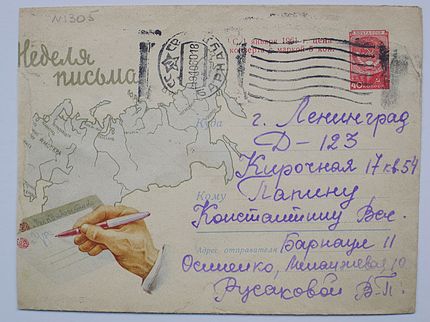 №1305
Неделя
письма
С 1 января 1961 г. цена
конверта с маркой коп.
ПОЧТА СССР
40
Куда
г. Ленинград
Д-123
Кирочная 17 кв. 54
Кому
Лапину
Константину Вс.
Адрес отправителя
Барнаул 11
Осипенко,
Русаковой В-П.